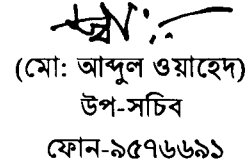 (মো: আব্দুল ওয়াহেদ)
উপ-সচিব
ফোন-৯৫৭৬৬৯১